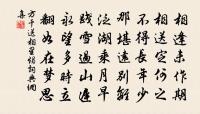 相逢未作期
相送定何之
不得長年少
那堪遠別離
泛湖乘月早
踐雪過山遲
永望多時立
翻如在夢思
方干送相里燭詞典網
集